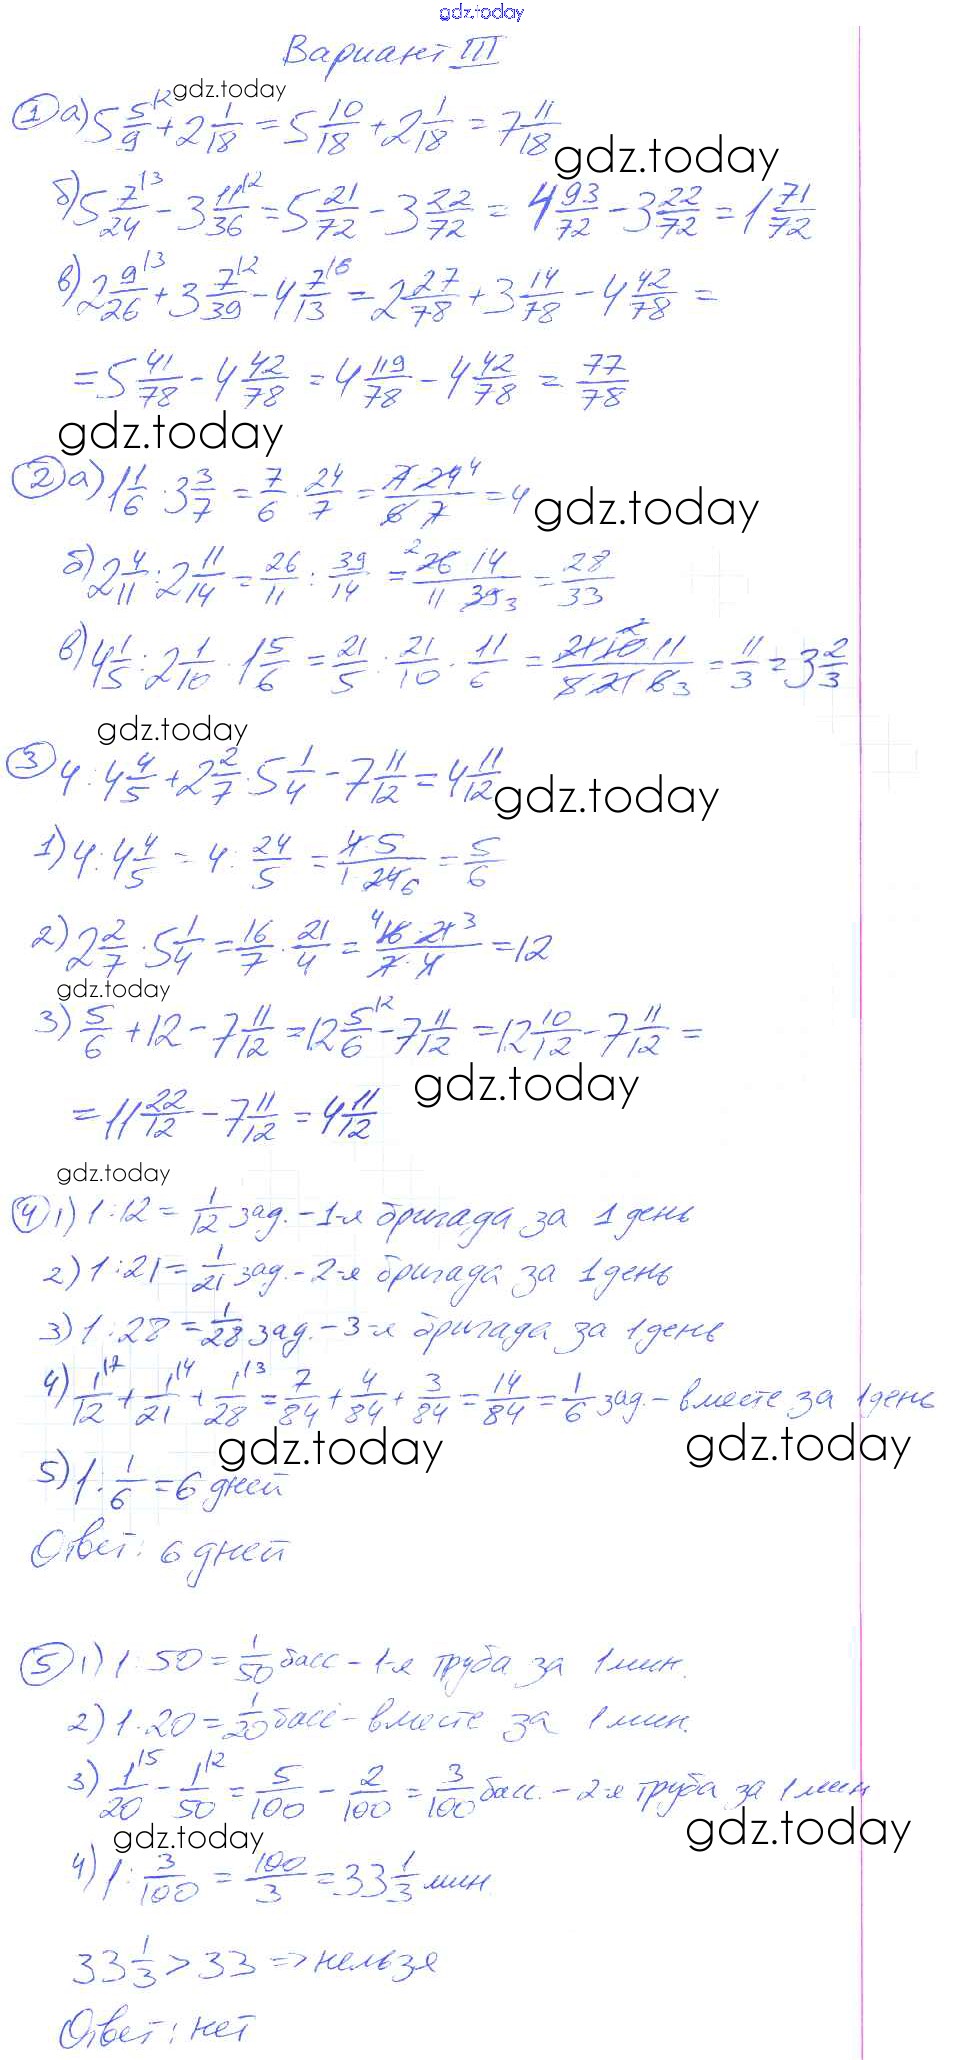 gdz.today
Вариант III
gdz.today
1 а) 5 5/9 |2 + 2 1/18 = 5 10/18 + 2 1/18 = 7 11/18
gdz.today
б) 5 7/24 |3 − 3 11/36 |2 = 5 21/72 − 3 22/72 = 4 93/72 − 3 22/72 = 1 71/72
в) 2 9/26 |3 + 3 7/39 |2 − 4 7/13 |6 = 2 27/78 + 3 14/78 − 4 42/78 =
= 5 41/78 − 4 42/78 = 4 119/78 − 4 42/78 = 77/78
gdz.today
2 а) 1 1/6 · 3 3/7 = 7/6 · 24/7 = (7 · 24 4)/(6 · 7) = 4
gdz.today
б) 2 4/11 : 2 11/14 = 26/11 : 39/14 = (2 26 · 14)/(11 · 39 3) = 28/33
в) 4 1/5 : 2 1/10 · 1 5/6 = 21/5 : 21/10 · 11/6 = (21 · 10 2 · 11)/(5 · 21 · 6 3) = 11/3 = 3 2/3
gdz.today
3 4 : 4 4/5 + 2 2/7 · 5 1/4 − 7 11/12 = 4 11/12
gdz.today
1) 4 : 4 4/5 = 4 : 24/5 = (4 · 5)/(1 · 24 6) = 5/6
2) 2 2/7 · 5 1/4 = 16/7 · 21/4 = (4 16 · 21 3)/(7 · 4) = 12
gdz.today
3) 5/6 + 12 − 7 11/12 = 12 5/6 |2 − 7 11/12 = 12 10/12 − 7 11/12 =
gdz.today
= 11 22/12 − 7 11/12 = 4 11/12
gdz.today
4 1) 1 : 12 = 1/12 зад. − 1-я бригада за 1 день
2) 1 : 21 = 1/21 зад. − 2-я бригада за 1 день
3) 1 : 28 = 1/28 зад. − 3-я бригада за 1 день
4) 1/12 |7 + 1/21 |4 + 1/28 |3 = 7/84 + 4/84 + 3/84 = 14/84 = 1/6 зад. − вместе за 1 день
gdz.today gdz.today
5) 1 : 1/6 = 6 дней
Ответ: 6 дней
5 1) 1 : 50 = 1/50 басс − 1-я труба за 1 мин.
2) 1 : 20 = 1/20 басс − вместе за 1 мин.
3) 1/20 |5 − 1/50 |2 = 5/100 − 2/100 = 3/100 басс. − 2-я труба за 1 мин
gdz.today gdz.today
4) 1 : 3/100 = 100/3 = 33 1/3 мин.
33 1/3 > 33 => нельзя
Ответ: нет